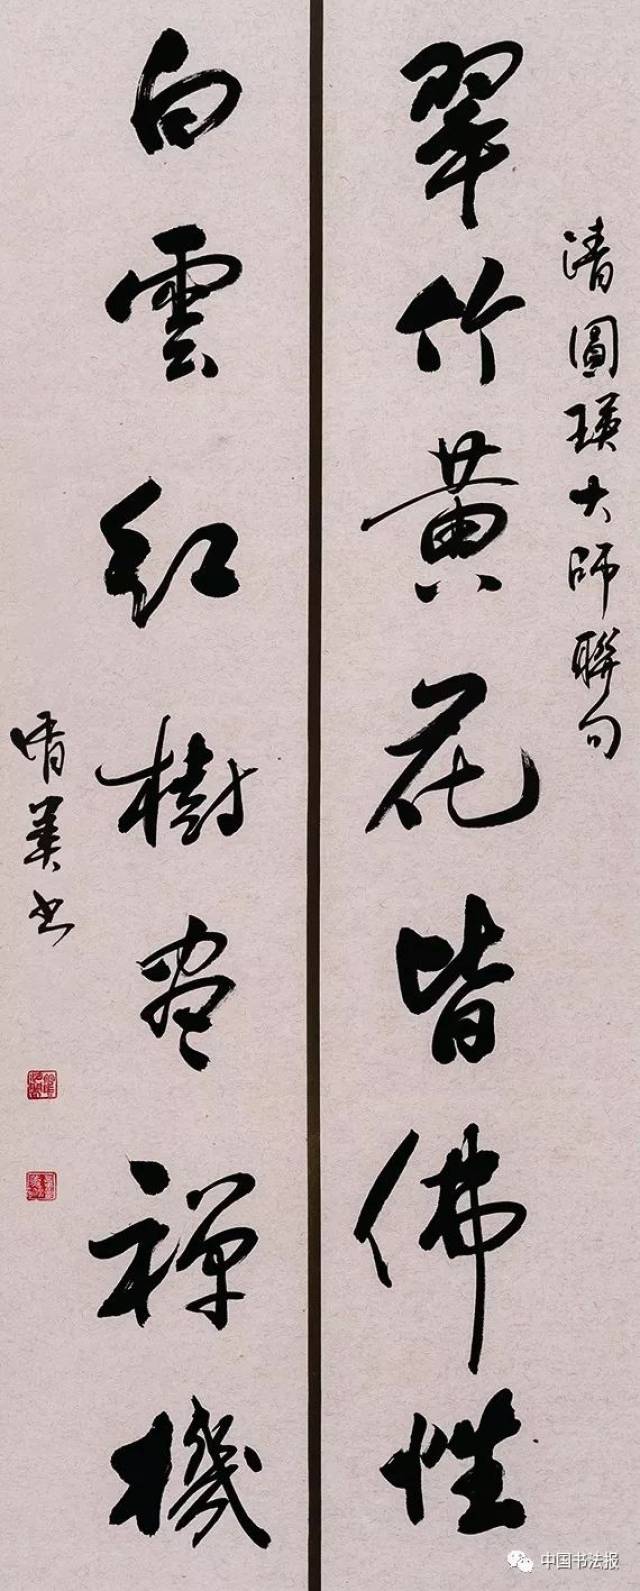 清圓瑛大師聯句
翠竹黄花皆佛性
白雲紅樹盡禪機
书
中国书法报